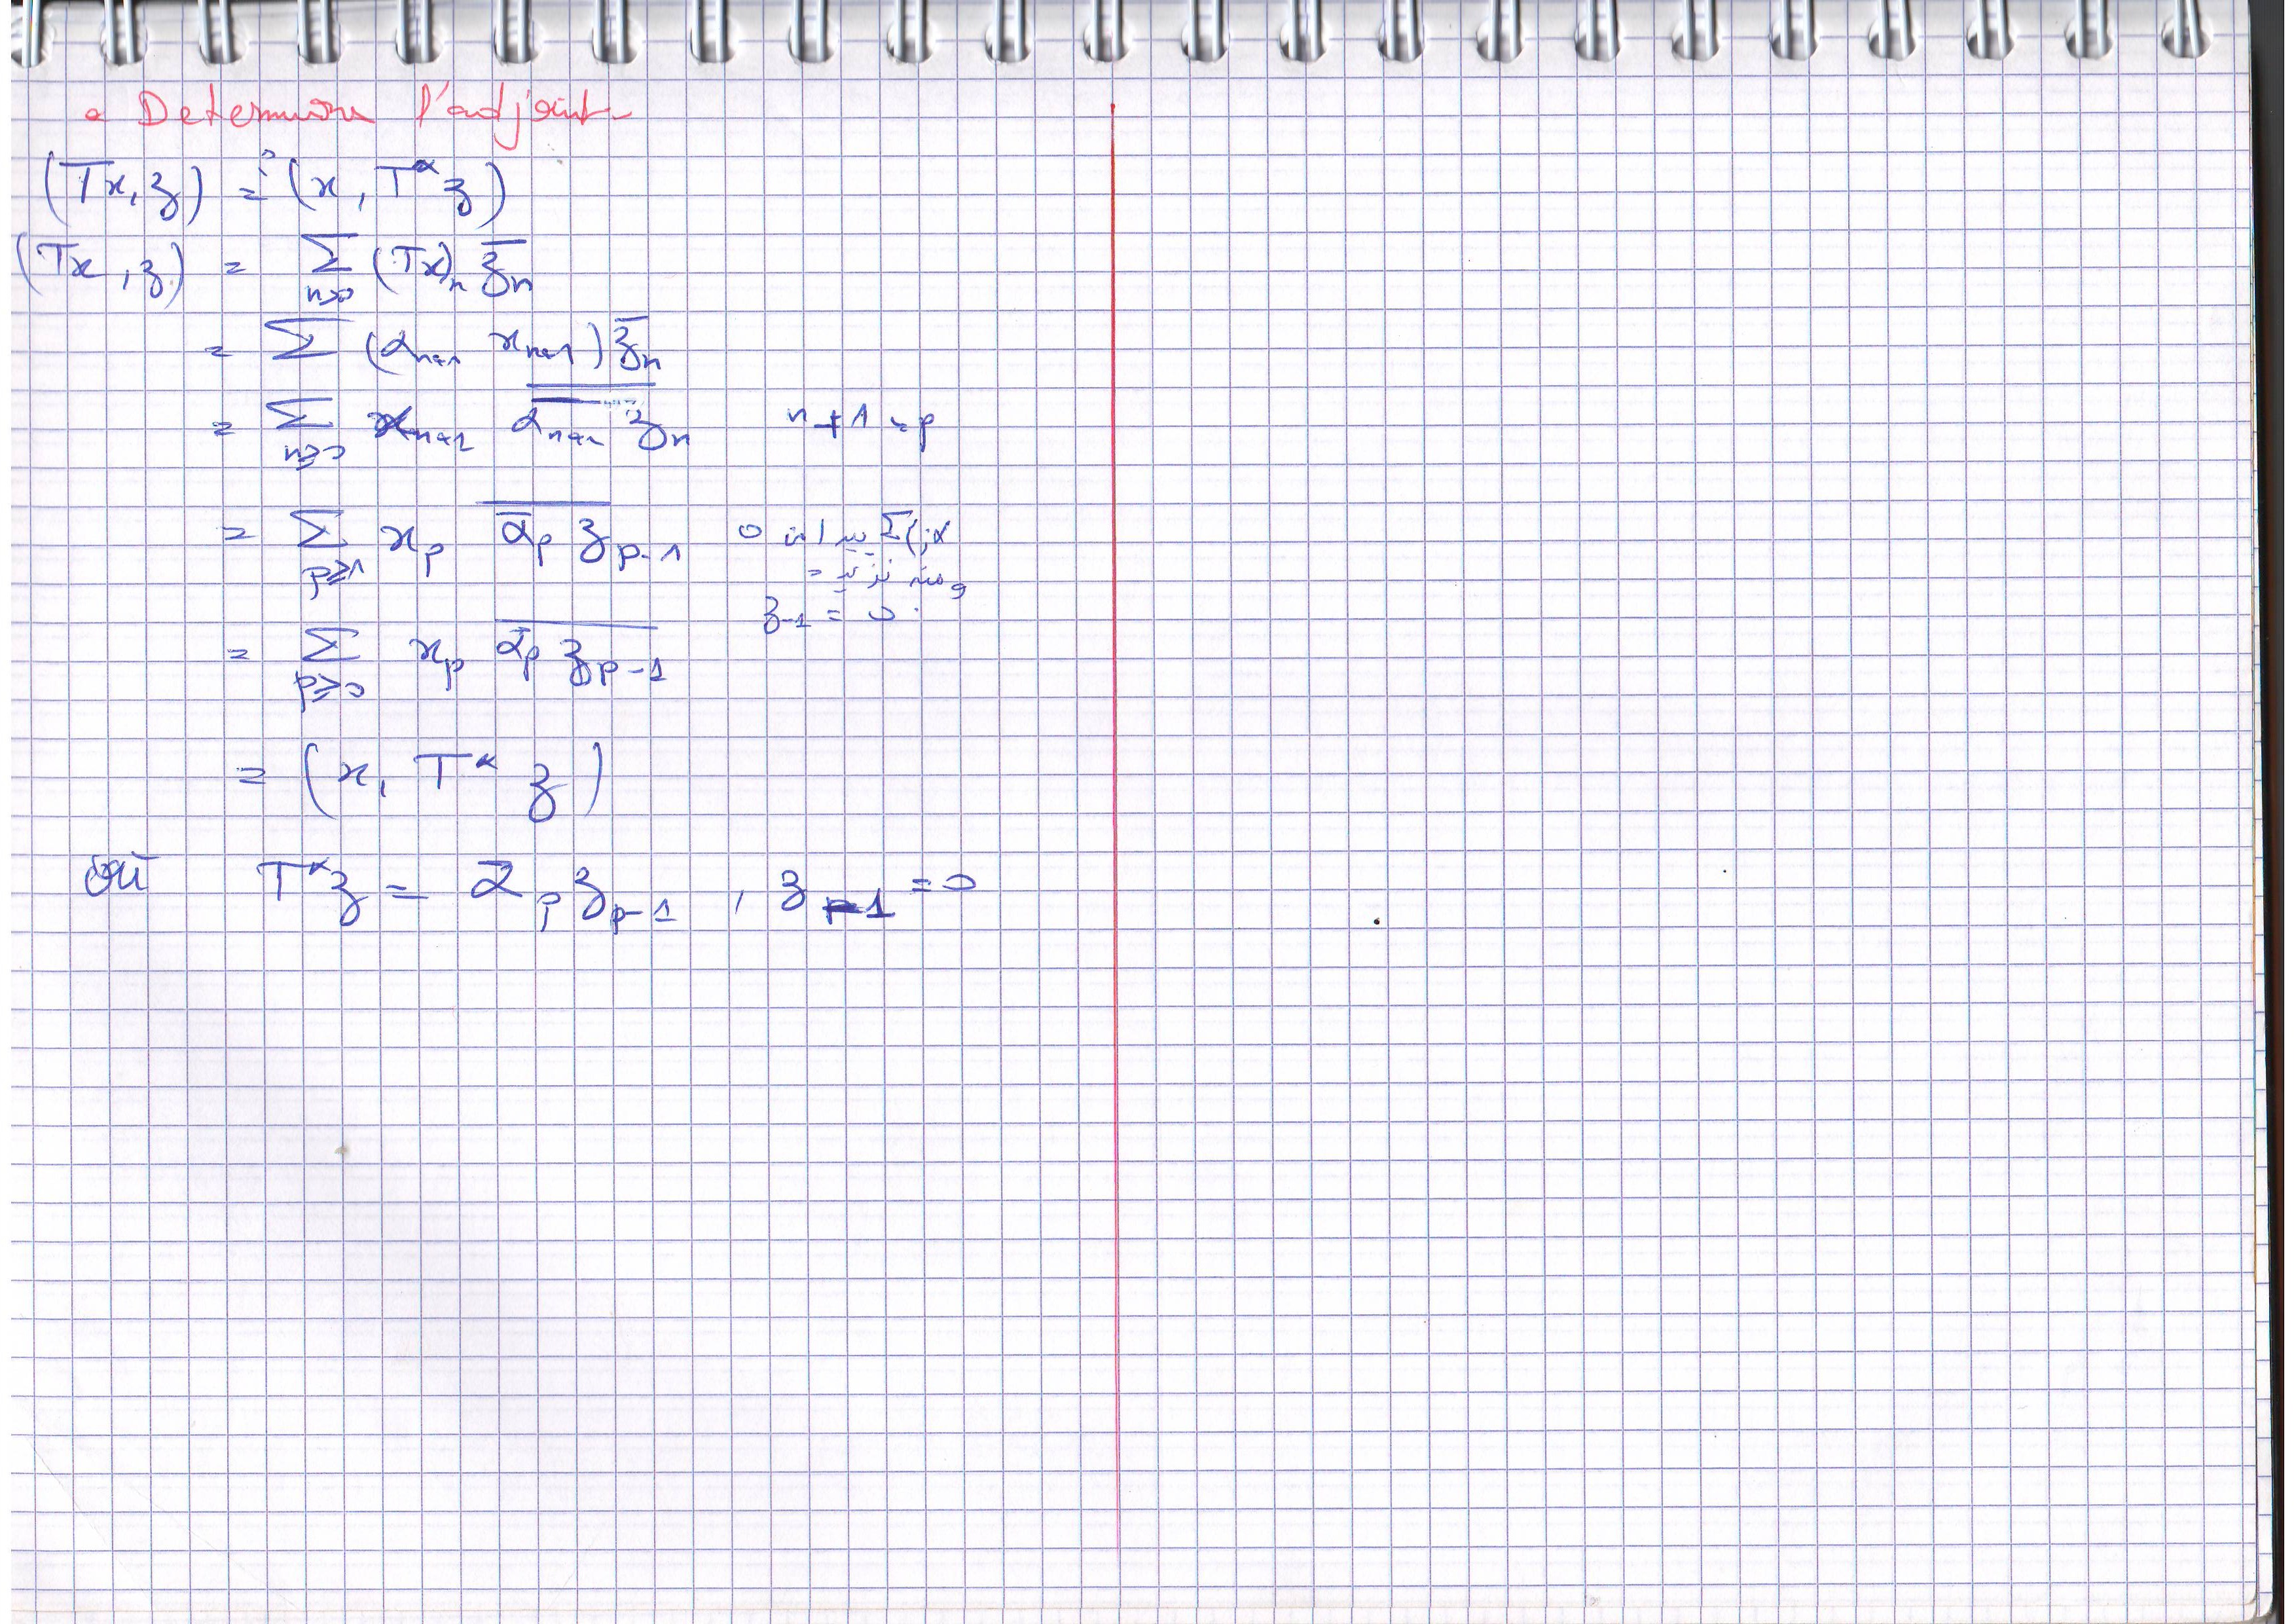 • Determiner l'adjoint
(Tx, z) =? (x, T*z)
(Tx, z) = Σ_{n≥0} (Tx)_n \overline{z_n}
= Σ (α_{n+1} x_{n+1}) \overline{z_n}
= Σ_{n≥0} x_{n+1} \overline{\overline{α_{n+1}} z_n} n+1 = p
= Σ_{p≥1} x_p \overline{\overline{α_p} z_{p-1}}
ومنه نزيد
z_{-1} = 0
= Σ_{p≥0} x_p \overline{\overline{α_p} z_{p-1}}
= (x, T* z)
où T*z = \overline{α}_p z_{p-1} , z_{-1} = 0